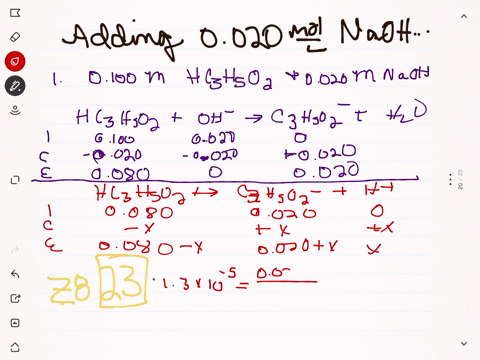 Adding 0.020 mol NaOH...
1. 0.100 m HC₃H₅O₂ + 0.020 m NaOH
HC₃H₅O₂ + OH⁻ → C₃H₅O₂⁻ + H₂O
I 0.100 0.020 0
C -0.020 -0.020 +0.020
E 0.080 0 0.020
HC₃H₅O₂ ↔ C₃H₅O₂⁻ + H+
I 0.080 0.020 0
C -x +x +x
E 0.080-x 0.020+x x
Z8 23 · 1.3 x 10⁻⁵ = 0.0
20 / 23